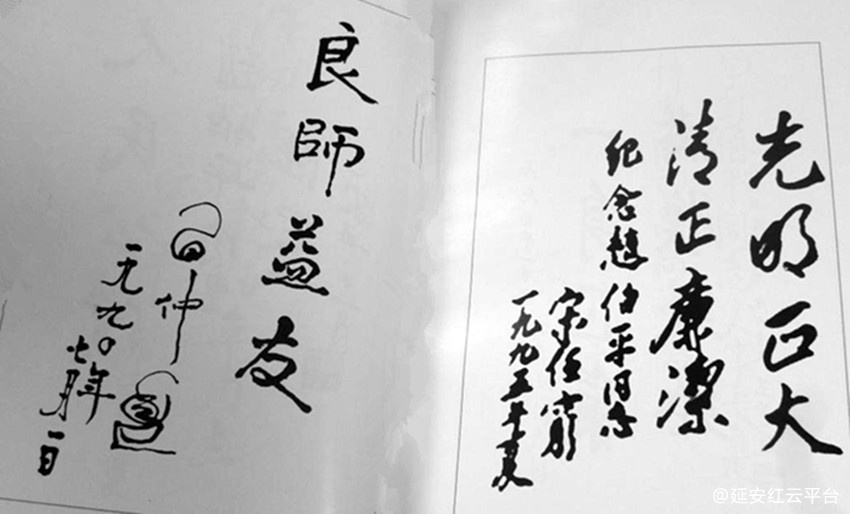 光明正大
清正廉潔
纪念趙伯平同志
宋任窮
一九九五年夏
良師益友
習仲勛
一九九〇年
七月一日
@延安红云平台